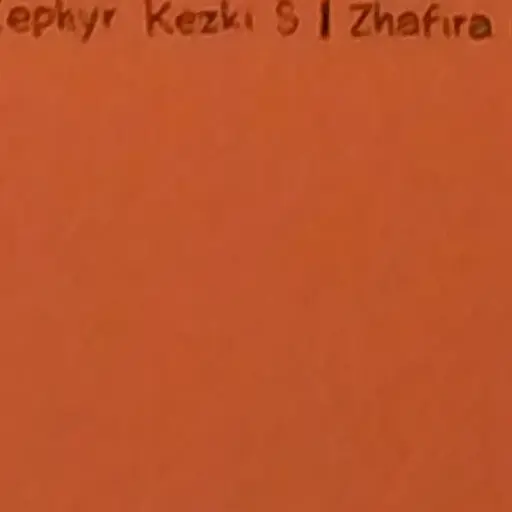 Zephyr Kezki S | Zhafira